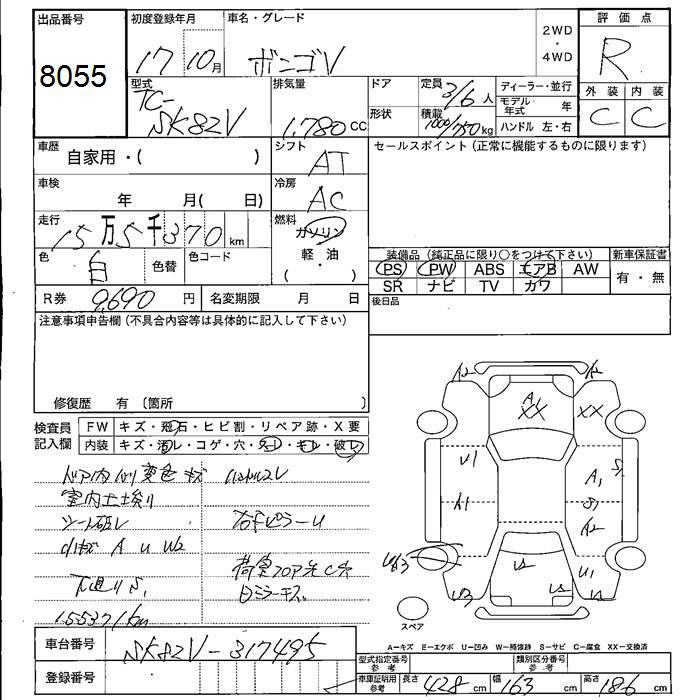 出品番号 8055
初度登録年月 17 10月
車名・グレード ボンゴV
2WD ・ 4WD
評価点 R
外装 C 内装 C
型式 TC-SK82V
排気量 1,780 cc
ドア
形状
定員 3/6 人
積載 1000/750 kg
ディーラー・並行
モデル年式 年
ハンドル 左・右
車歴 自家用・( )
シフト AT
セールスポイント(正常に機能するものに限ります)
車検 年 月( 日)
冷房 AC
走行 15万5千370 km
燃料 ガソリン 軽・油 ( )
色 白 色替 色コード
装備品(純正品に限り○をつけて下さい) 新車保証書
PS PW ABS エアB AW 有・無
SR ナビ TV カワ
R券 9,690 円 名変期限 月 日
後日品
注意事項申告欄(不具合内容等は具体的に記入して下さい)
修復歴 有 〔箇所 〕
検査員記入欄
FW キズ・飛石・ヒビ割・リペア跡・X要
内装 キズ・汚レ・コゲ・穴・スレ・キレ・破レ
ドア内ハリ変色 キズ
室内
シート破レ
A U W2
右FピラーU
荷室フロア C穴
下廻りS
ミラーキズ
155371km
A2 A2
A1
XX XX
U1 A1 S1
A1 S1
A2
U3 U2 U2 U1
スペア
A=キズ E=エクボ U=凹み W=補修跡 S=サビ C=腐食 XX=交換済
車台番号 SK82V-317495
登録番号
型式指定番号 参考
類別区分番号 参考
車庫証明用 参考 長さ 428 cm 幅 163 cm 高さ 186 cm